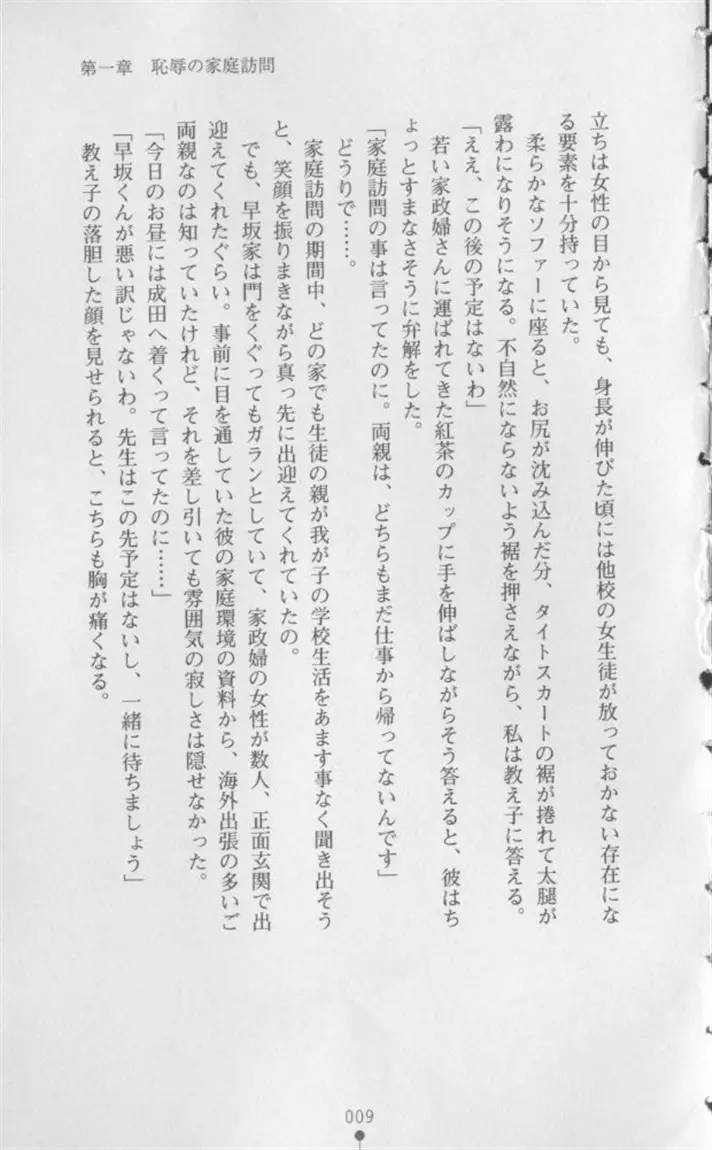 第一章　恥辱の家庭訪問
立ちは女性の目から見ても、身長が伸びた頃には他校の女生徒が放っておかない存在にな
る要素を十分持っていた。
　柔らかなソファーに座ると、お尻が沈み込んだ分、タイトスカートの裾が捲れて太腿が
露わになりそうになる。不自然にならないよう裾を押さえながら、私は教え子に答える。
「ええ、この後の予定はないわ」
　若い家政婦さんに運ばれてきた紅茶のカップに手を伸ばしながらそう答えると、彼はち
ょっとすまなさそうに弁解をした。
「家庭訪問の事は言ってたのに。両親は、どちらもまだ仕事から帰ってないんです」
　どうりで……。
　家庭訪問の期間中、どの家でも生徒の親が我が子の学校生活をあます事なく聞き出そう
と、笑顔を振りまきながら真っ先に出迎えてくれていたの。
　でも、早坂家は門をくぐってもガランとしていて、家政婦の女性が数人、正面玄関で出
迎えてくれたぐらい。事前に目を通していた彼の家庭環境の資料から、海外出張の多いご
両親なのは知っていたけれど、それを差し引いても雰囲気の寂しさは隠せなかった。
「今日のお昼には成田へ着くって言ってたのに……」
「早坂くんが悪い訳じゃないわ。先生はこの先予定はないし、一緒に待ちましょう」
　教え子の落胆した顔を見せられると、こちらも胸が痛くなる。
009